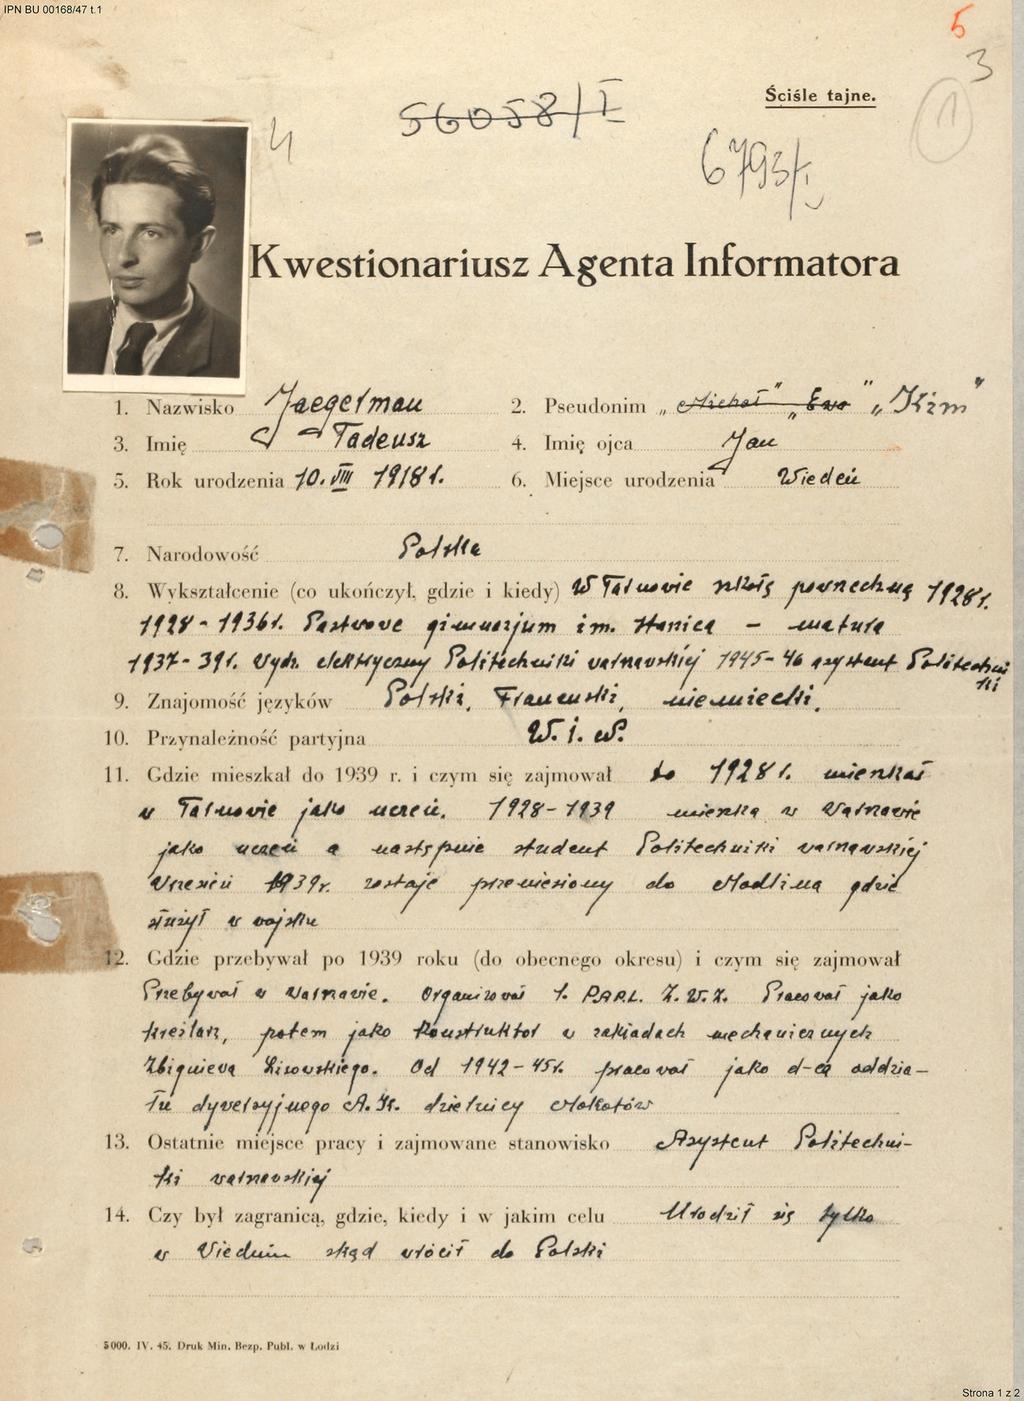 IPN BU 00168/47 t.1
5
3
Ściśle tajne.
1
56058/I
4
6793/I
Kwestionariusz Agenta Informatora
1. Nazwisko Jaegerman 2. Pseudonim „Michał” „Ewa” „Kim”
3. Imię Tadeusz 4. Imię ojca Jan
5. Rok urodzenia 10.VIII 1918 r. 6. Miejsce urodzenia Wiedeń
7. Narodowość Polska
8. Wykształcenie (co ukończył, gdzie i kiedy) W Tarnowie szkołę powszechną 1928 r.
1928-1936 r. gimnazjum im. - matura
1937-39 r. Wydz. elektryczny Politechniki warszawskiej 1945-46 asystent Politechni
ki
9. Znajomość języków Polski, Francuski, niemiecki.
10. Przynależność partyjna W.i.W.
11. Gdzie mieszkał do 1939 r. i czym się zajmował do 1928 r. mieszkał
w Tarnowie jako uczeń. 1928-1939 mieszka w Warszawie
jako uczeń a następnie student Politechniki warszawskiej
Wrzesień 1939 r. zostaje przeniesiony do Modlina gdzie
służył w wojsku
12. Gdzie przebywał po 1939 roku (do obecnego okresu) i czym się zajmował
Przebywał w Warszawie. Organizował Z.W.Z. Pracował jako
kreślarz, potem jako konstruktor w zakładach mechanicznych
Zbigniewa Lisowskiego. Od 1942-45 r. pracował jako d-ca oddzia-
łu dywersyjnego A.K. dzielnicy Mokotów
13. Ostatnie miejsce pracy i zajmowane stanowisko Asystent Politechni-
ki warszawskiej
14. Czy był zagranicą, gdzie, kiedy i w jakim celu Urodził się tylko
w Wiedniu skąd wrócił do Polski
5000. IV. 45. Druk Min. Bezp. Publ. w Łodzi
Strona 1 z 2